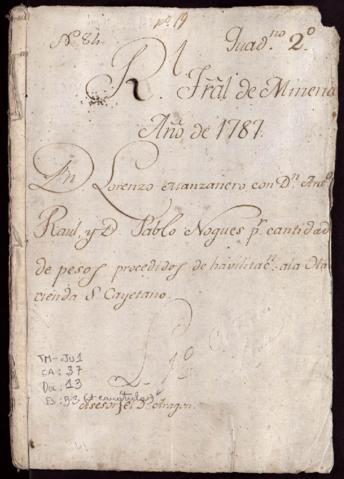 nº 19
Nº 84.
Quad.no 2.º
R.l Trâl de Mineria
Año de 1787.
Dn Lorenzo Manzanero con D.n Ant.º
Raul, y D. Pablo Nogues p.r cantidad
de pesos procedidos de havilitac.n ala Ha
cienda S. Cayetano.
L. 1º
TM-JU1
CA: 37
Do: 13
F: 93 (+ caratula)
Asesor el D.r Aragon.